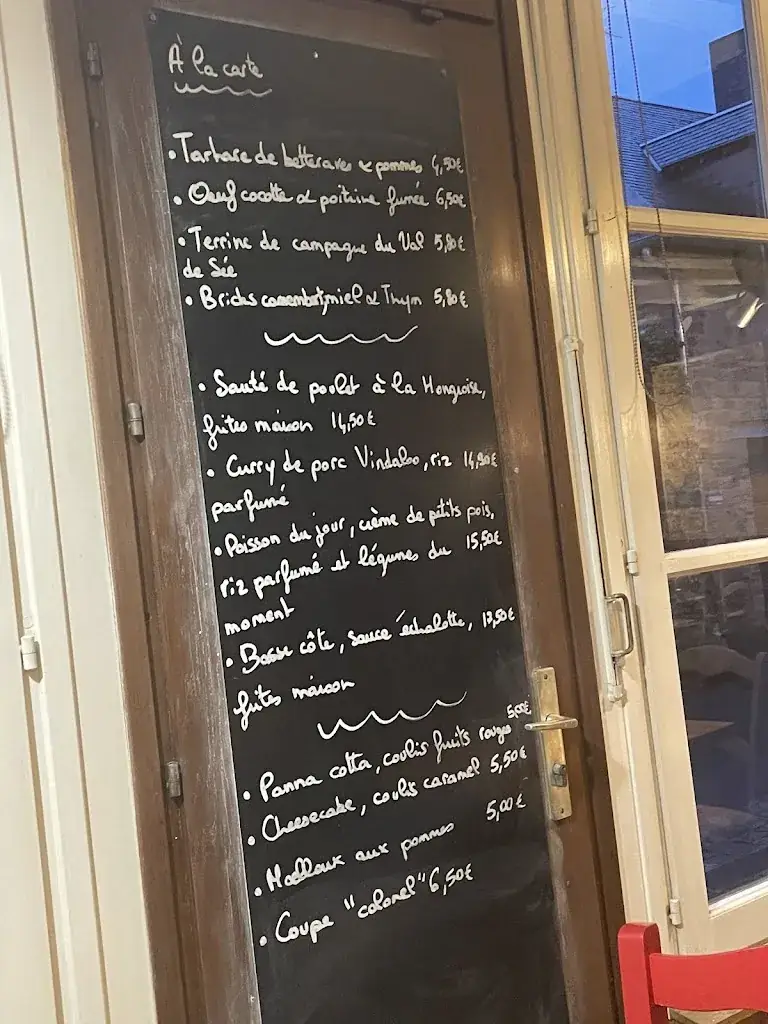 À la carte
• Tartare de betteraves & pommes 4,50€
• Oeuf cocotte & poitrine fumée 6,50€
• Terrine de campagne du Val 5,80€
de Sée
• Bricks camembert, miel & Thym 5,80€
• Sauté de poulet à la Hongroise,
frites maison 14,50€
• Curry de porc Vindaloo, riz 14,90€
parfumé
• Poisson du jour, crème de petits pois,
riz parfumé et légumes du 15,50€
moment
• Basse côte, sauce échalotte, 13,50€
frites maison
• Panna cotta, coulis fruits rouges 5,00€
• Cheesecake, coulis caramel 5,50€
• Moelleux aux pommes 5,00€
• Coupe "colonel" 6,50€